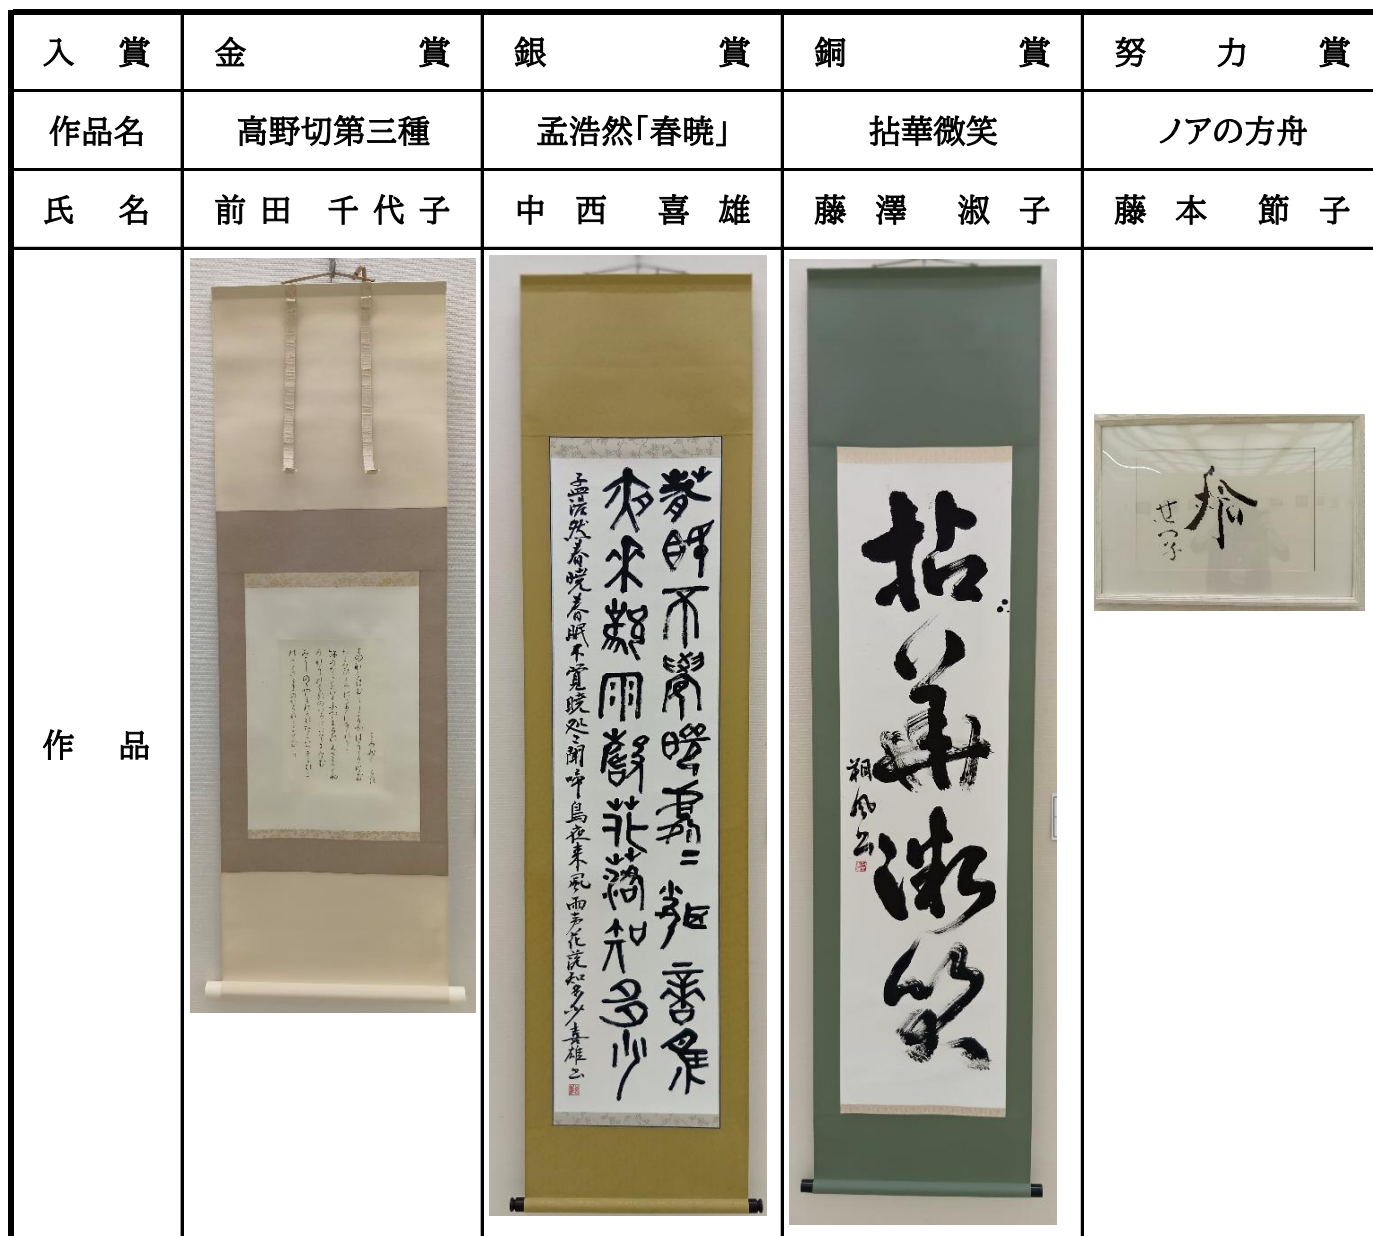 入賞 金賞 銀賞 銅賞 努力賞
作品名 高野切第三種 孟浩然「春暁」 拈華微笑 ノアの方舟
氏名 前田 千代子 中西 喜雄 藤澤 淑子 藤本 節子
作品
春眠不覺曉處二聞啼鳥
夜来風雨聲花落知多少
孟浩然春暁春眠不覚暁処々聞啼鳥夜来風雨声花落知多少喜雄书
拈華微笑
翔風书